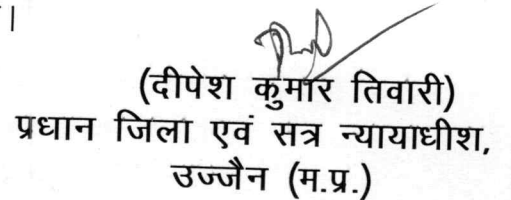 ।
(दीपेश कुमार तिवारी)
प्रधान जिला एवं सत्र न्यायाधीश,
उज्जैन (म.प्र.)